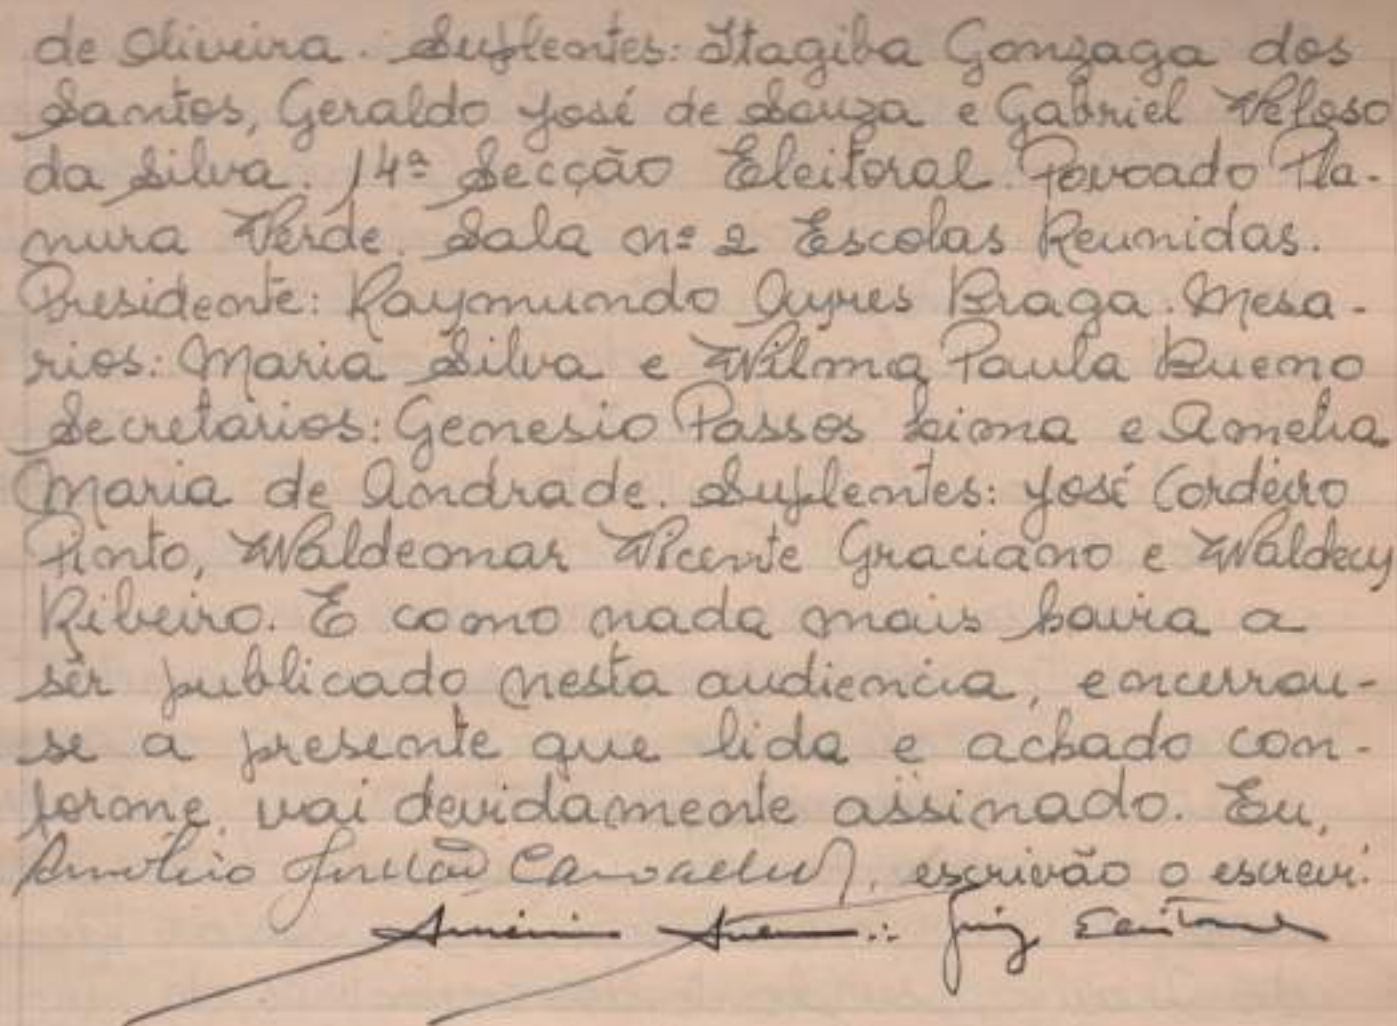 de Oliveira. Suplentes: Itagiba Gonzaga dos
Santos, Geraldo José de Souza e Gabriel Veloso
da Silva. 14ª Secção Eleitoral. Povoado Pla-
nura Verde. Sala nº 2 Escolas Reunidas.
Presidente: Raymundo Ayres Braga. Mesa-
rios: Maria Silva e Wilma Paula Bueno
Secretarios: Genesio Passos Lima e Amelia
Maria de Andrade. Suplentes: José Cordeiro
Pinto, Waldemar Vicente Graciano e Waldecy
Ribeiro. E como nada mais havia a
ser publicado nesta audiencia, encerrou-
se a presente que lida e achado con-
forme, vai devidamente assinado. Eu,
escrivão o escrevi.
Juiz Eleitoral